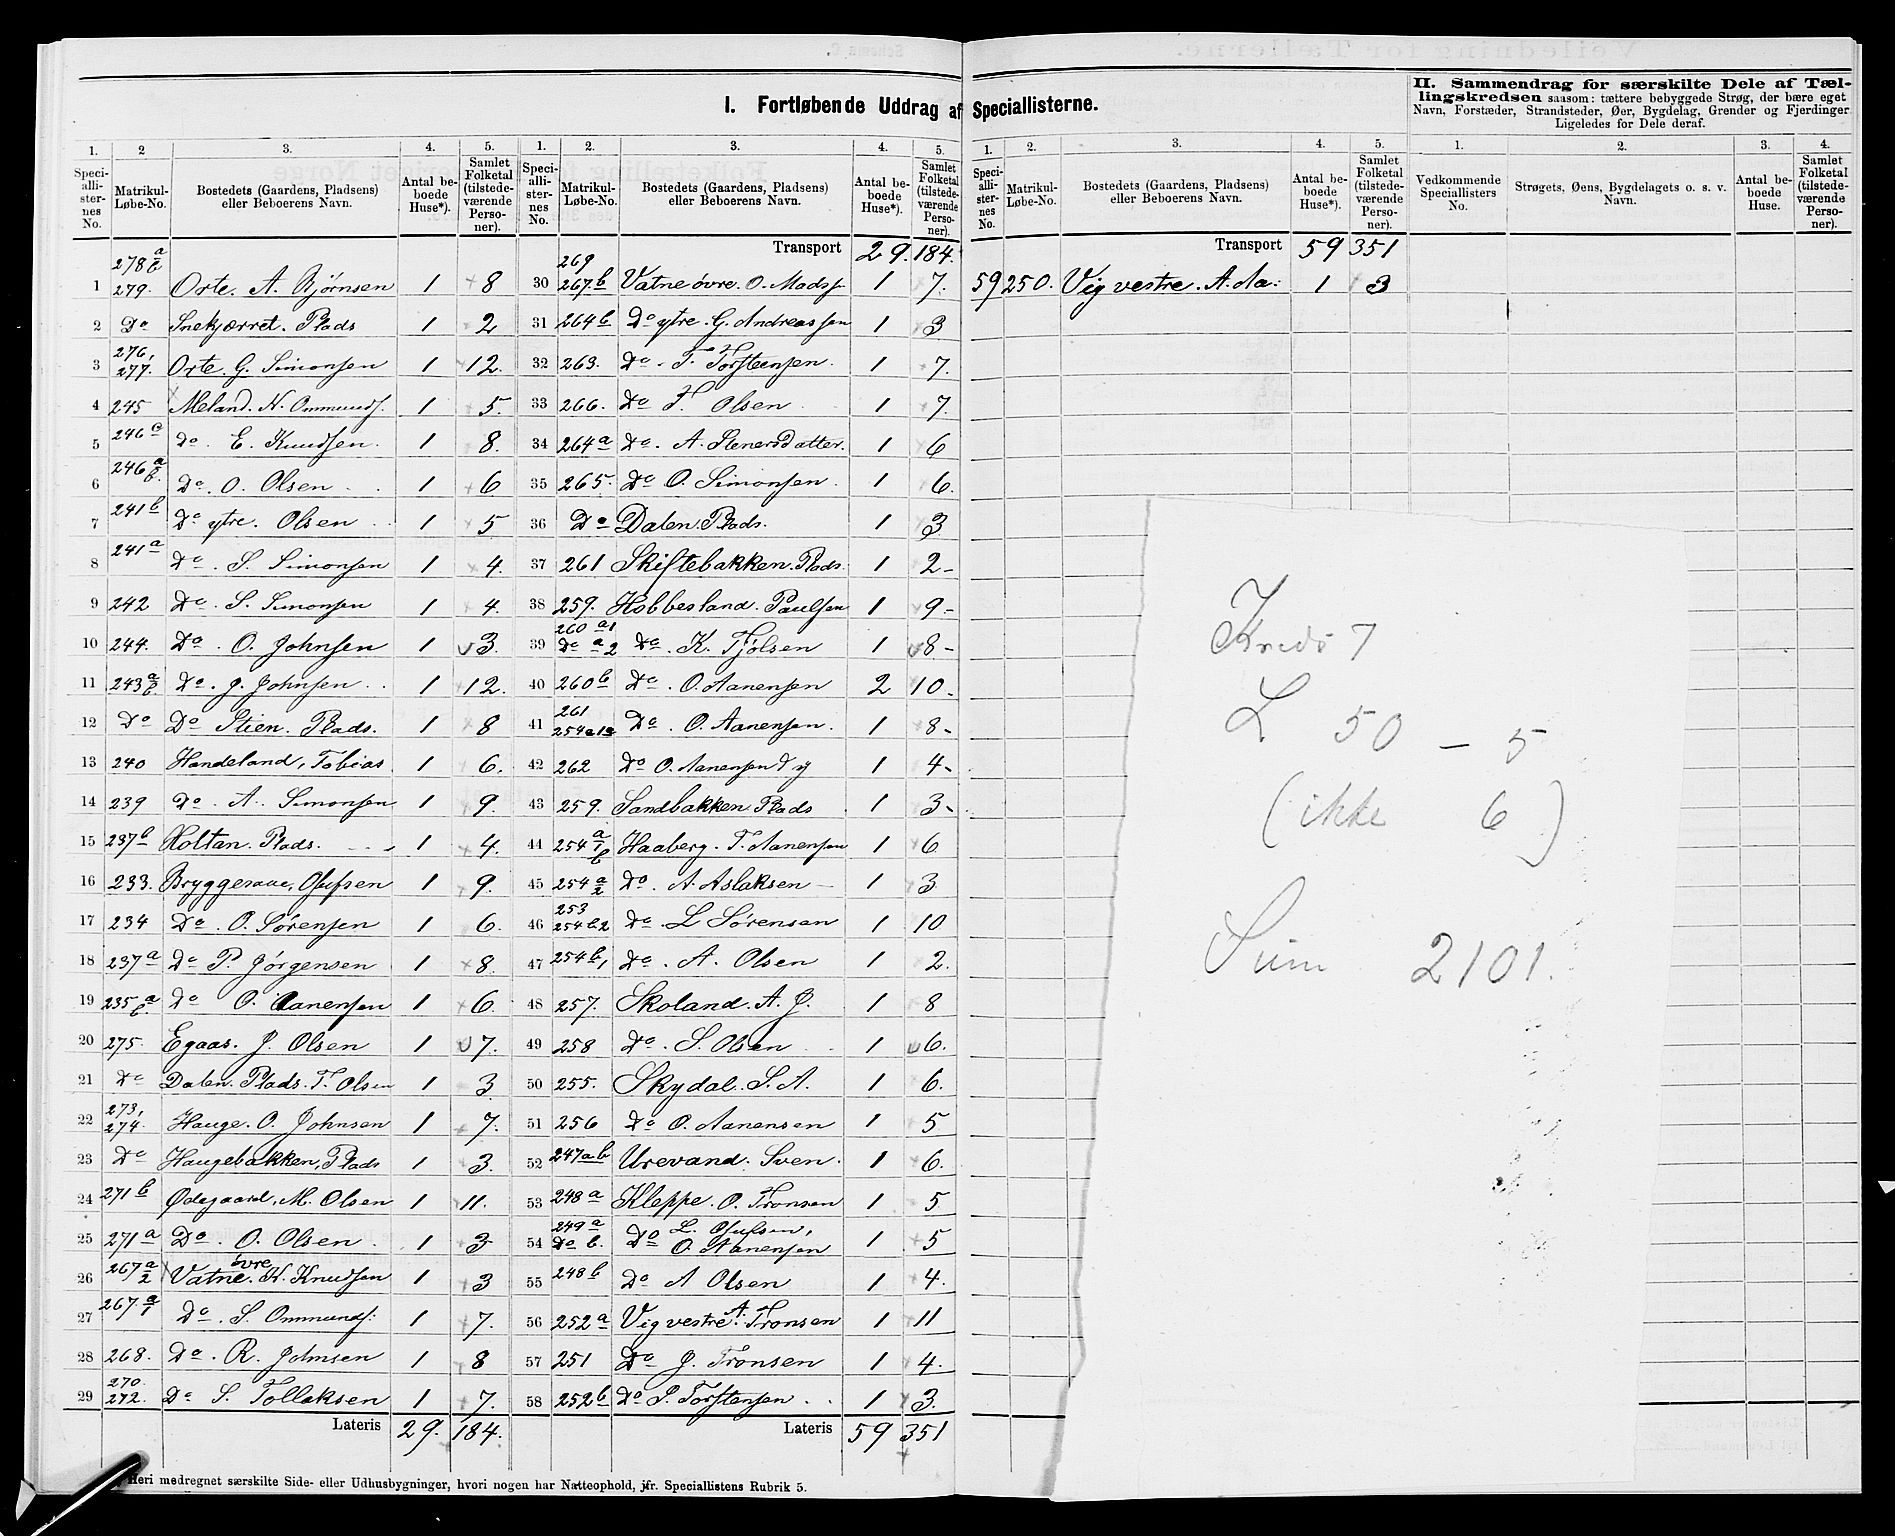 I. Fortløbende Uddrag af Speciallisterne.
II. Sammendrag for særskilte Dele af Tællingskredsen saasom: tættere bebyggede Strøg, der bære eget
Navn, Forstæder, Strandsteder, Øer, Bygdelag, Grender og Fjerdinger
Ligeledes for Dele deraf.
1. 2 3. 4. 5.
Speciallisternes No. Matrikul-Løbe-No. Bostedets (Gaardens, Pladsens) eller Beboerens Navn. Antal beboede Huse*). Samlet Folketal (tilstedeværende Personer).
278 a/b
1 279. Orte. A. Bjørnsen 1 8
2 Do Snekjærret. Plads 1 2
276,
3 277. Orte. G. Simonsen 1 12.
4 245 Meland. N. Ommunds. 1 5.
5 246 c Do. E. Knudsen. 1 8.
6 246 a/b. Do. O. Olsen 1 6
7 241 b Do ytre. Olsen 1 5
8 241 a Do. S. Simonsen 1 4.
9 242 Do. S. Simonsen 1 4.
10 244. Do. O. Johnsen 1 3.
11 243 a/b Do. J. Johnsen 1 12.
12 Do Do Stien. Plads. 1 8
13 240 Handeland, Tobias 1 6.
14 239 Do. A. Simonsen 1 9.
15 237 b Holtan. Plads. 1 4.
16 233. Bryggesaae, Olufsen 1 9.
17 234 Do. O. Sørensen 1 6.
18 237 a Do P. Jørgensen 1 8.
19 235 a/b. Do O. Aanensen 1 6.
20 275. Egaas. J. Olsen 1 7.
21 Do Dalen. Plads. T. Olsen 1 3
273,
22 274. Hauge. O. Johnsen 1 7.
23 Do Haugebakken, Plads 1 3.
24 271 b Ødegaard, M. Olsen 1 11.
25 271 a Do. O. Olsen 1 3
26 267 a/2 Vatne øvre. K. Knudsen 1 3
27 267. a/1 Do. S. Ommunds: 1 7.
28 268. Do. R. Johnsen 1 8
270.
29 272. Do S. Tollaksen 1 7.
Lateris 29. 184.
1. 2. 3. 4. 5.
Speciallisternes No. Matrikul-Løbe-No. Bostedets (Gaardens, Pladsens) eller Beboerens Navn. Antal beboede Huse*). Samlet Folketal (tilstedeværende Personer).
Transport 29. 184.
269
30 267. b Vatne øvre. O. Madss. 1 7.
31 264 b Do ytre. G. Andreassen 1 3
32 263. Do. T. Torsteensen. 1 7.
33 266. Do T. Olsen 1 7.
34 264 a Do. A. Stenersdatter. 1 6
35 265. Do O. Simonsen. 1 6.
36 Do Dalen. Plads. 1 3
37 261 Skiftebakken. Plads. 1 2-
38 259. Hobbesland. Paulsen 1 9-
260 a1
39 Do a2 Do. K. Tjølsen 1 8-
40 260 b Do. O. Aanensen 2 10-
261
41 254 a 1a Do. O. Aanensen. 1 8-
42 262 Do O. Aanensen d y 1 4-
43 259. Sandbakken Plads 1 3-
44 254 a/1 b Haaberg. T. Aanensen 1 6
45 254 a/2 Do. A. Aslaksen 1 3
253
46 254 b2 Do. L Sørensen 1 10
47 254 b,1 Do. A. Olsen 1 2.
48 257. Skoland. A. J. 1 8
49 258 Do. S. Olsen 1 6.
50 255. Skydal. S. A. 1 6.
51 256 Do O. Aanensen 1 5
52 247 a b Urevand. Sven. 1 6.
53 248 a Kleppe. O. Tronsen 1 5
249 a L. Olufsen,
54 Do b. Do O. Aanensen 1 5
55 248 b Do A Olsen 1 4.
56 252 a Vig vestre. A. Tronsen 1 11
57 251 Do J. Tronsen 1 4.
58 252 b Do P. Torstensen 1 3.
Lateris 59 351
1. 2. 3. 4. 5.
Speciallisternes No. Matrikul-Løbe-No. Bostedets (Gaardens, Pladsens) eller Beboerens Navn. Antal beboede Huse*). Samlet Folketal (tilstedeværende Personer).
Transport 59 351
59 250. Vig vestre. A. Aa: 1 3
1. 2. 3. 4.
Vedkommende Speciallisters No. Strøgets, Øens, Bygdelagets o. s. v. Navn. Antal beboede Huse. Samlet Folketal (tilstedeværende Personer).
Kreds 7
L 50 - 5
(ikke 6)
Sum 2101.
Heri medregnet særskilte Side- eller Udhusbygninger, hvori nogen har Natteophold, jfr. Speciallistens Rubrik 5.